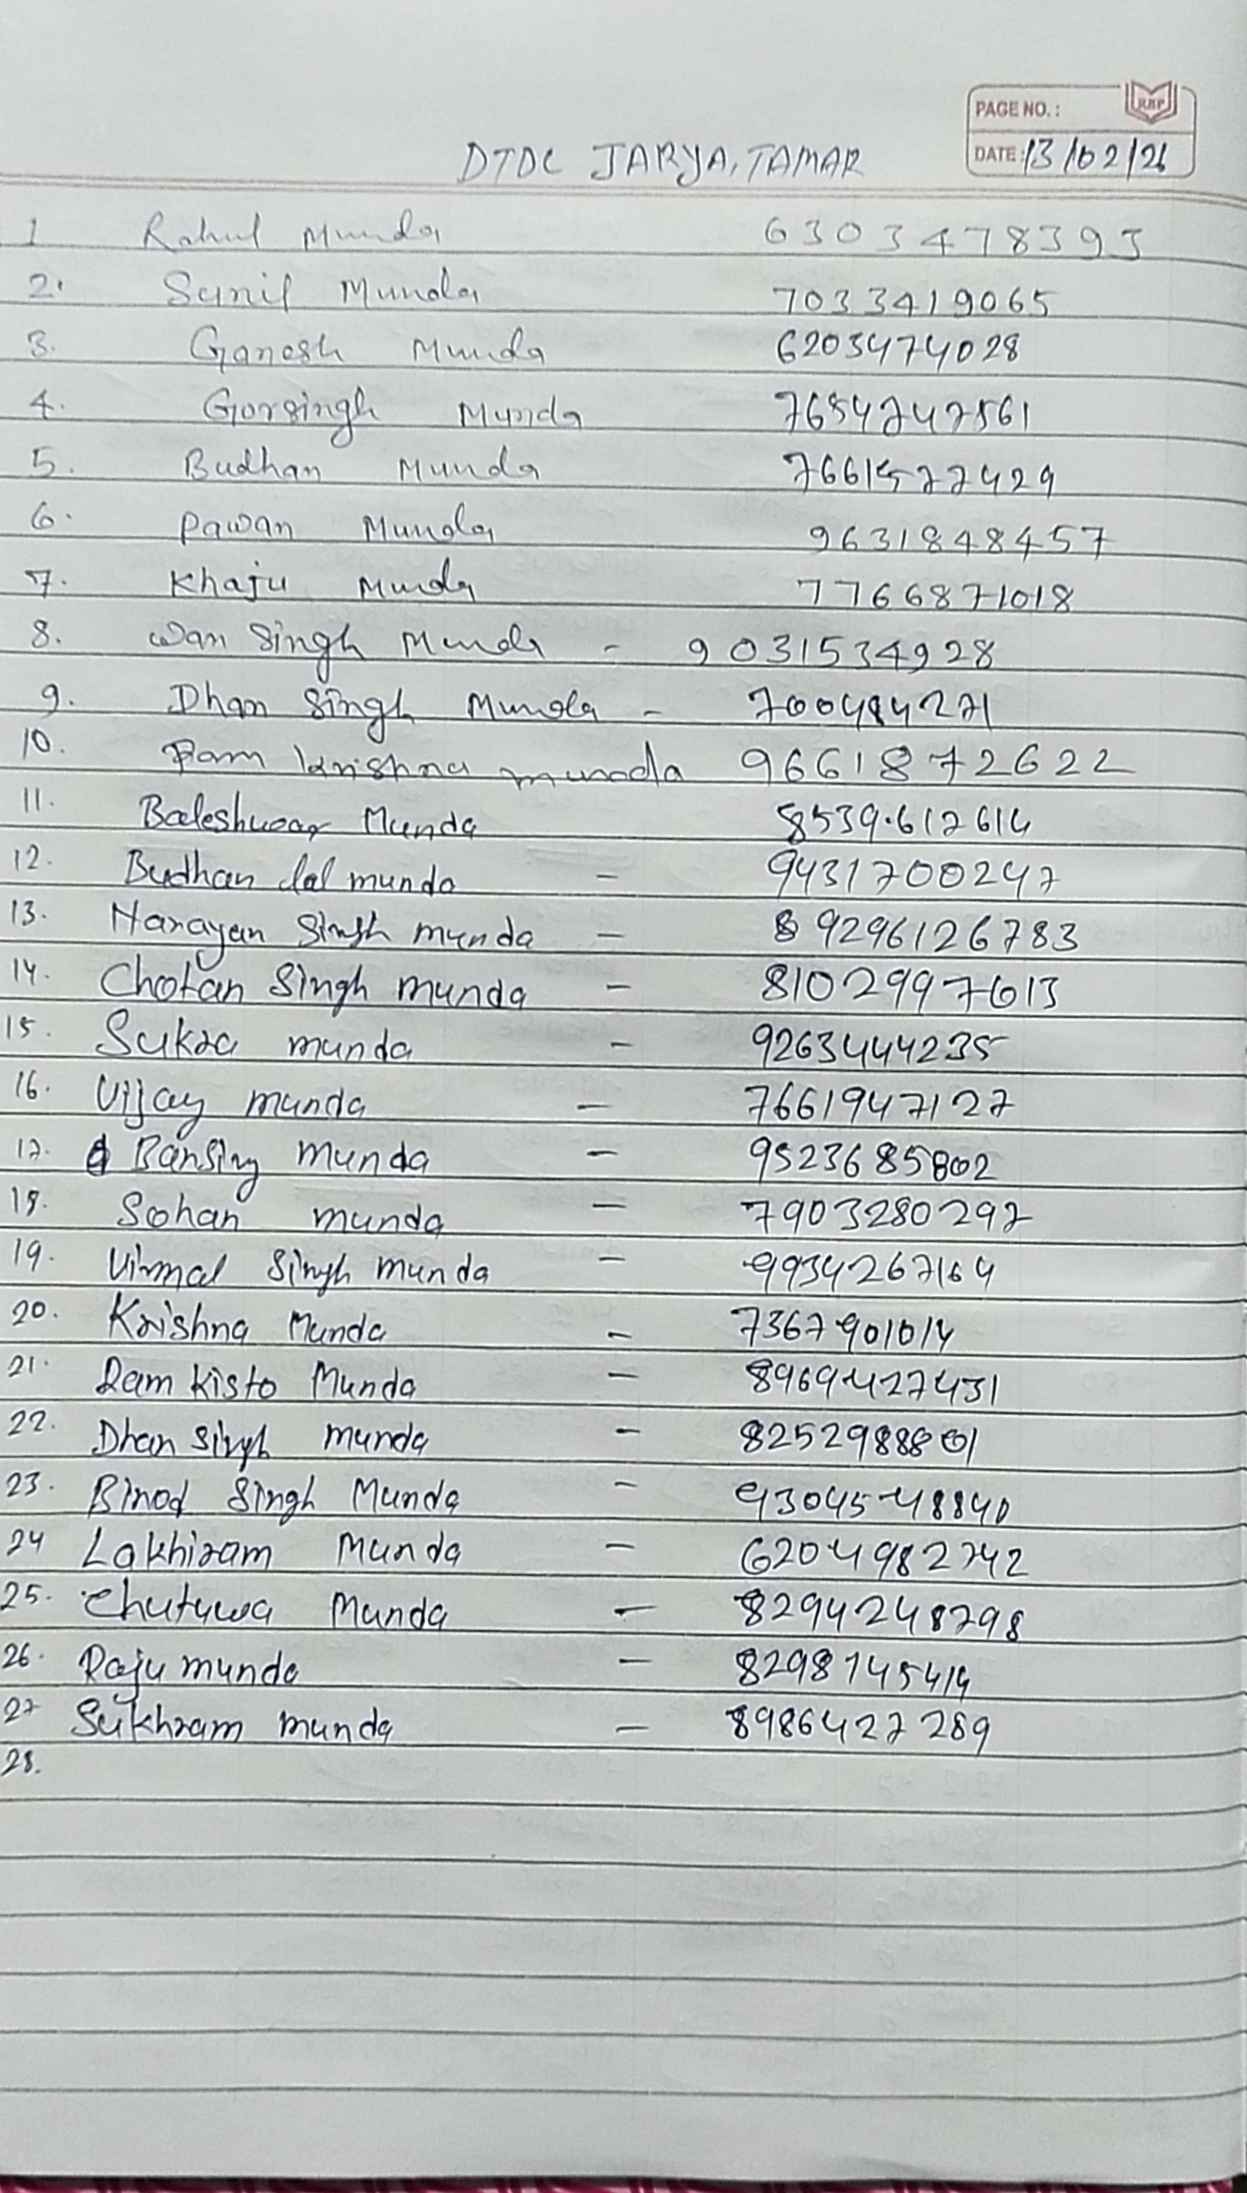 PAGE NO.:
RBP
DATE: 13/02/26
DTDC JARYA, TAMAR
1 Rahul Munda 6303478393
2. Sunil Munda 7033419065
3. Ganesh Munda 6203474028
4. Gorsingh Munda 7654747561
5. Budhan Munda 7661577429
6. Pawan Munda 9631848457
7. Khaju Munda 7766871018
8. Wan Singh Munda - 9031534928
9. Dhan Singh Munda - 700484271
10. Ram krishna munada 9661872622
11. Baleshwar Munda 8539.617614
12. Budhan lal munda - 94317700247
13. Narayan Singh munda - 9296126783
14. Chotan Singh munda - 81029997613
15. Sukra munda - 9263444235
16. Vijay munda - 7661947127
17. Bansing munda - 9523685802
18. Sohan munda - 7903280297
19. Virmal Singh munda - 9934267164
20. Krishna Munda - 7367901014
21. Ram kisto Munda - 8969427431
22. Dhan Singh munda - 8252988801
23. Binod Singh Munda - 9304548840
24 Lakhiram Munda - 6204982742
25. Chutuwa Munda - 8294248798
26. Raju munda - 8298745414
27 Sukhram munda - 8986427289
28.